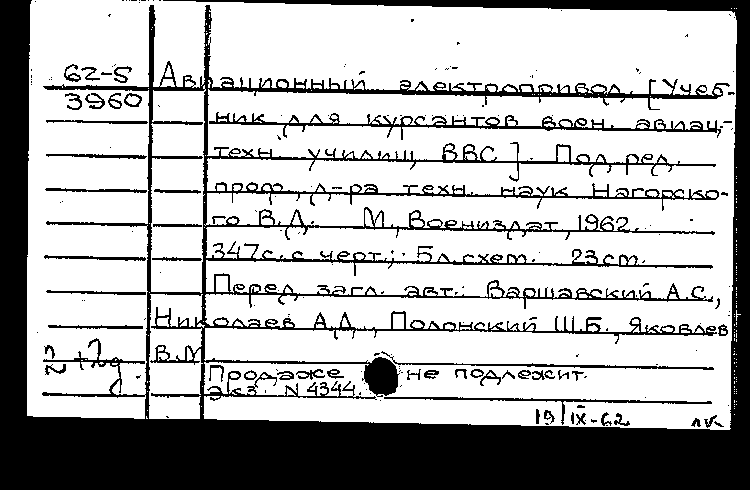 62-5 Авиационный электропривод. [Учеб-
3960 ник для курсантов воен. авиац.-
техн. училищ ВВС]. Под ред.
проф., д-ра техн. наук Нагорско-
го В.Д. М., Воениздат, 1962.
347с. с черт.; 5л.схем. 23см.
Перед загл. авт.: Варшавский А.С.,
Николаев А.Д., Полонский Ш.Б., Яковлев
В.М.
Продаже не подлежит.
Экз. N 4344.
19/IX-62